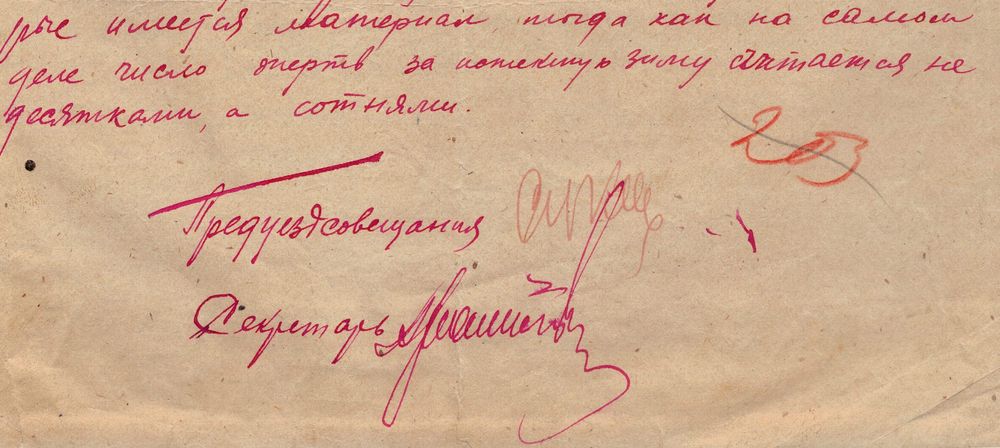 рые имеется материал тогда как на самом
деле число жертв за истекшую зиму считается не
десятками, а сотнями.
203
Предуездсовещания
Секретарь